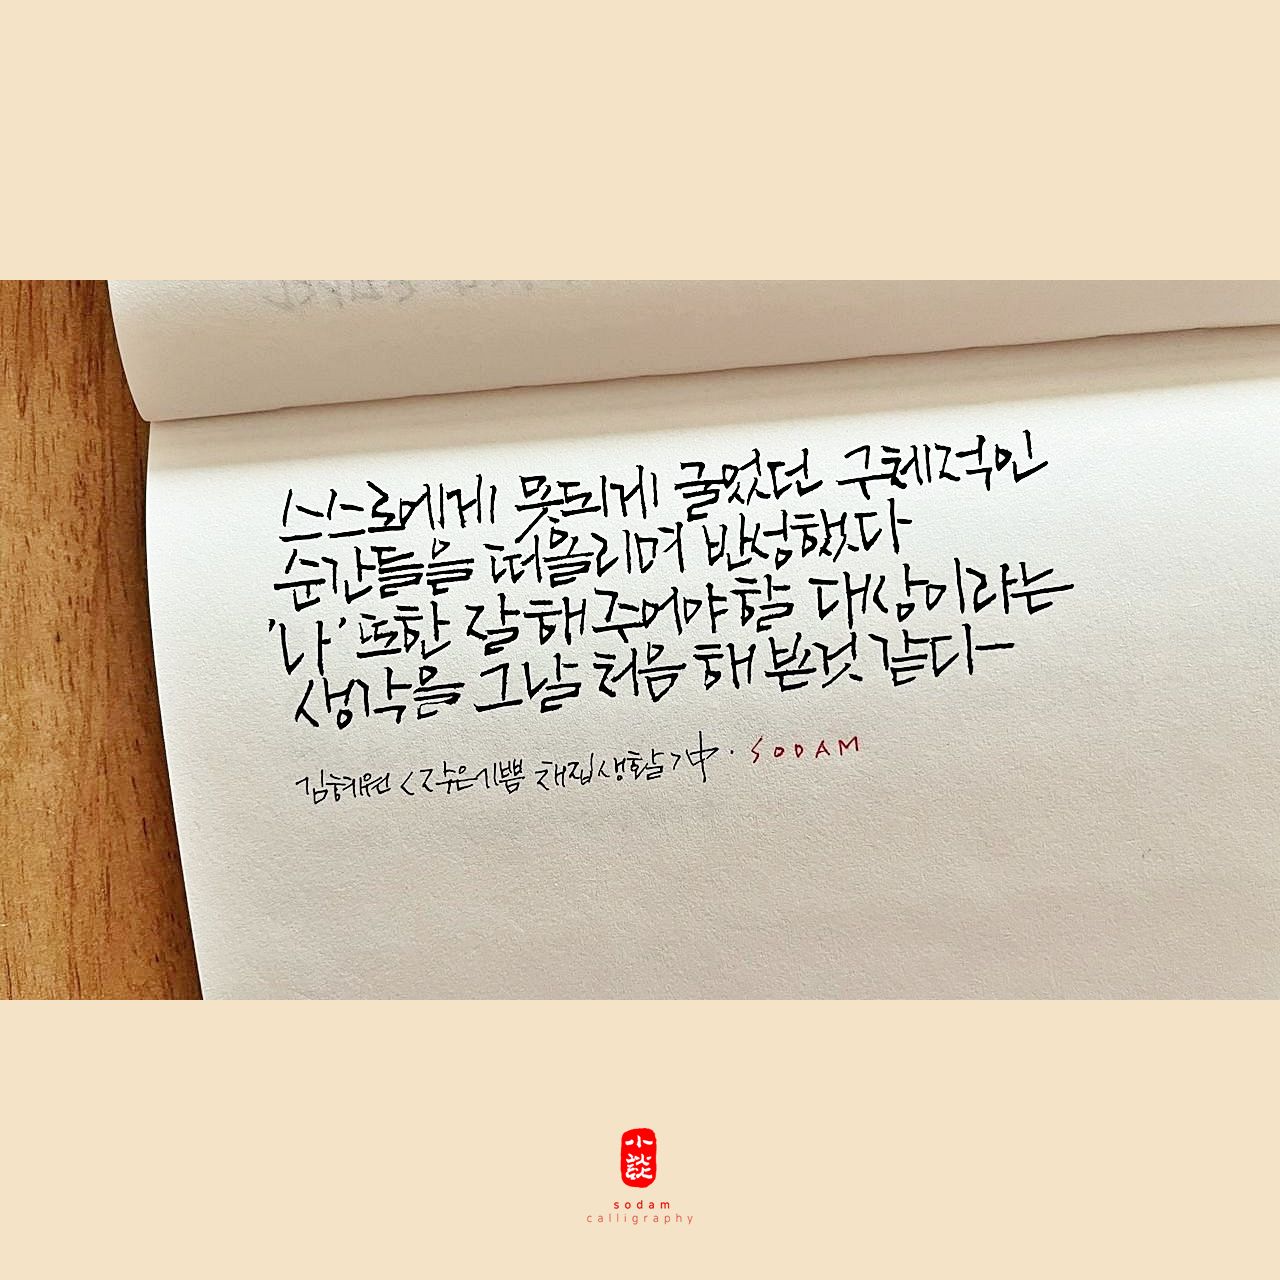 스스로에게 못되게 굴었던 구체적인
순간들을 떠올리며 반성했다
'나' 또한 잘해주어야할 대상이라는
생각을 그날 처음 해 본것 같다-
김혜원 <작은기쁨 채집생활>中. SODAM
小談
sodam
calligraphy